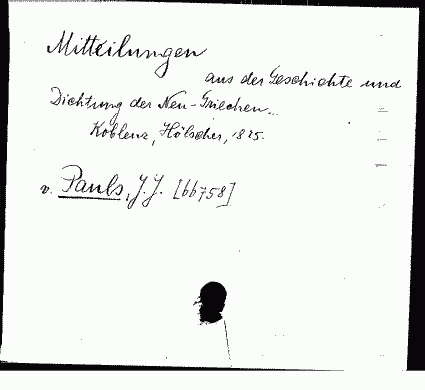 Mitteilungen
aus der Geschichte und
Dichtung der Neu-Griechen..
Koblenz, Hölscher, 1825.
v. Pauls, J.J. [bb758]